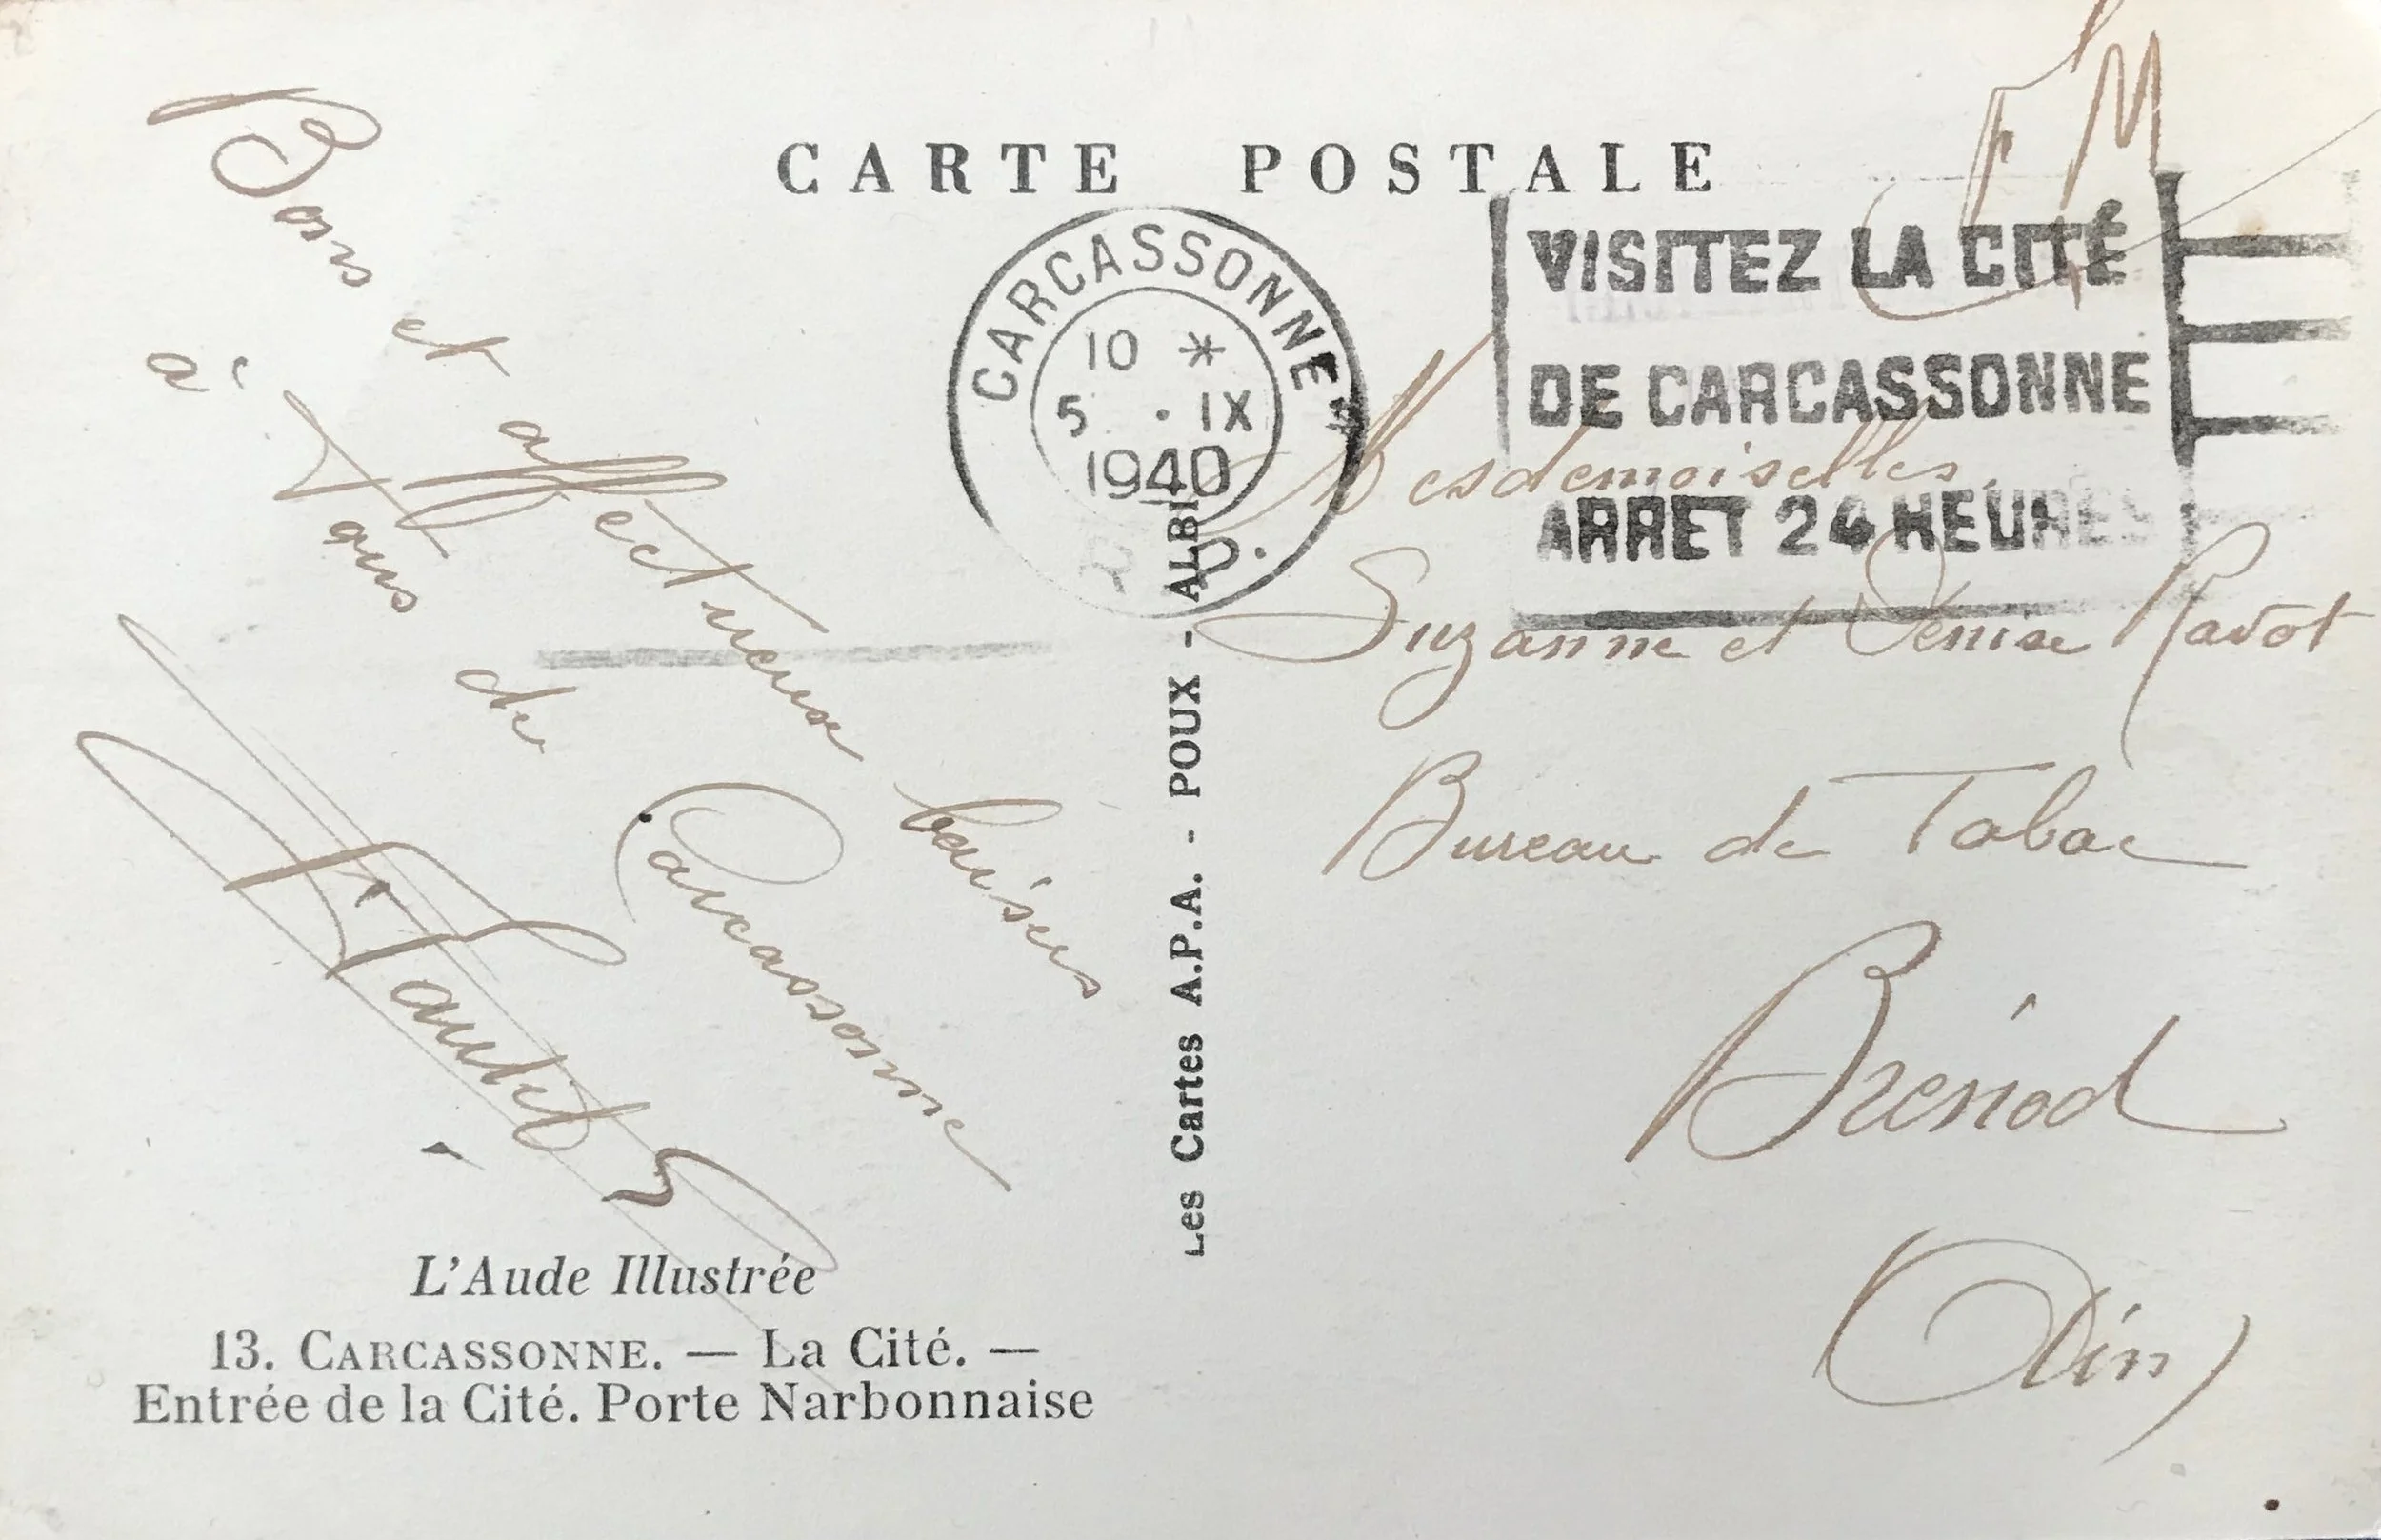 CARTE POSTALE
F M
CARCASSONNE
10 *
5 . IX
1940
VISITEZ LA CITÉ
DE CARCASSONNE
ARRET 24 HEURES
Bons et affectueux baisers
à Tous de Carcassonne
Mesdemoiselles
Suzanne et Denise Ravot
Bureau de Tabac
Brénod
(Ain)
Les Cartes A.P.A. - POUX - ALBI
L'Aude Illustrée
13. CARCASSONNE. — La Cité. —
Entrée de la Cité. Porte Narbonnaise